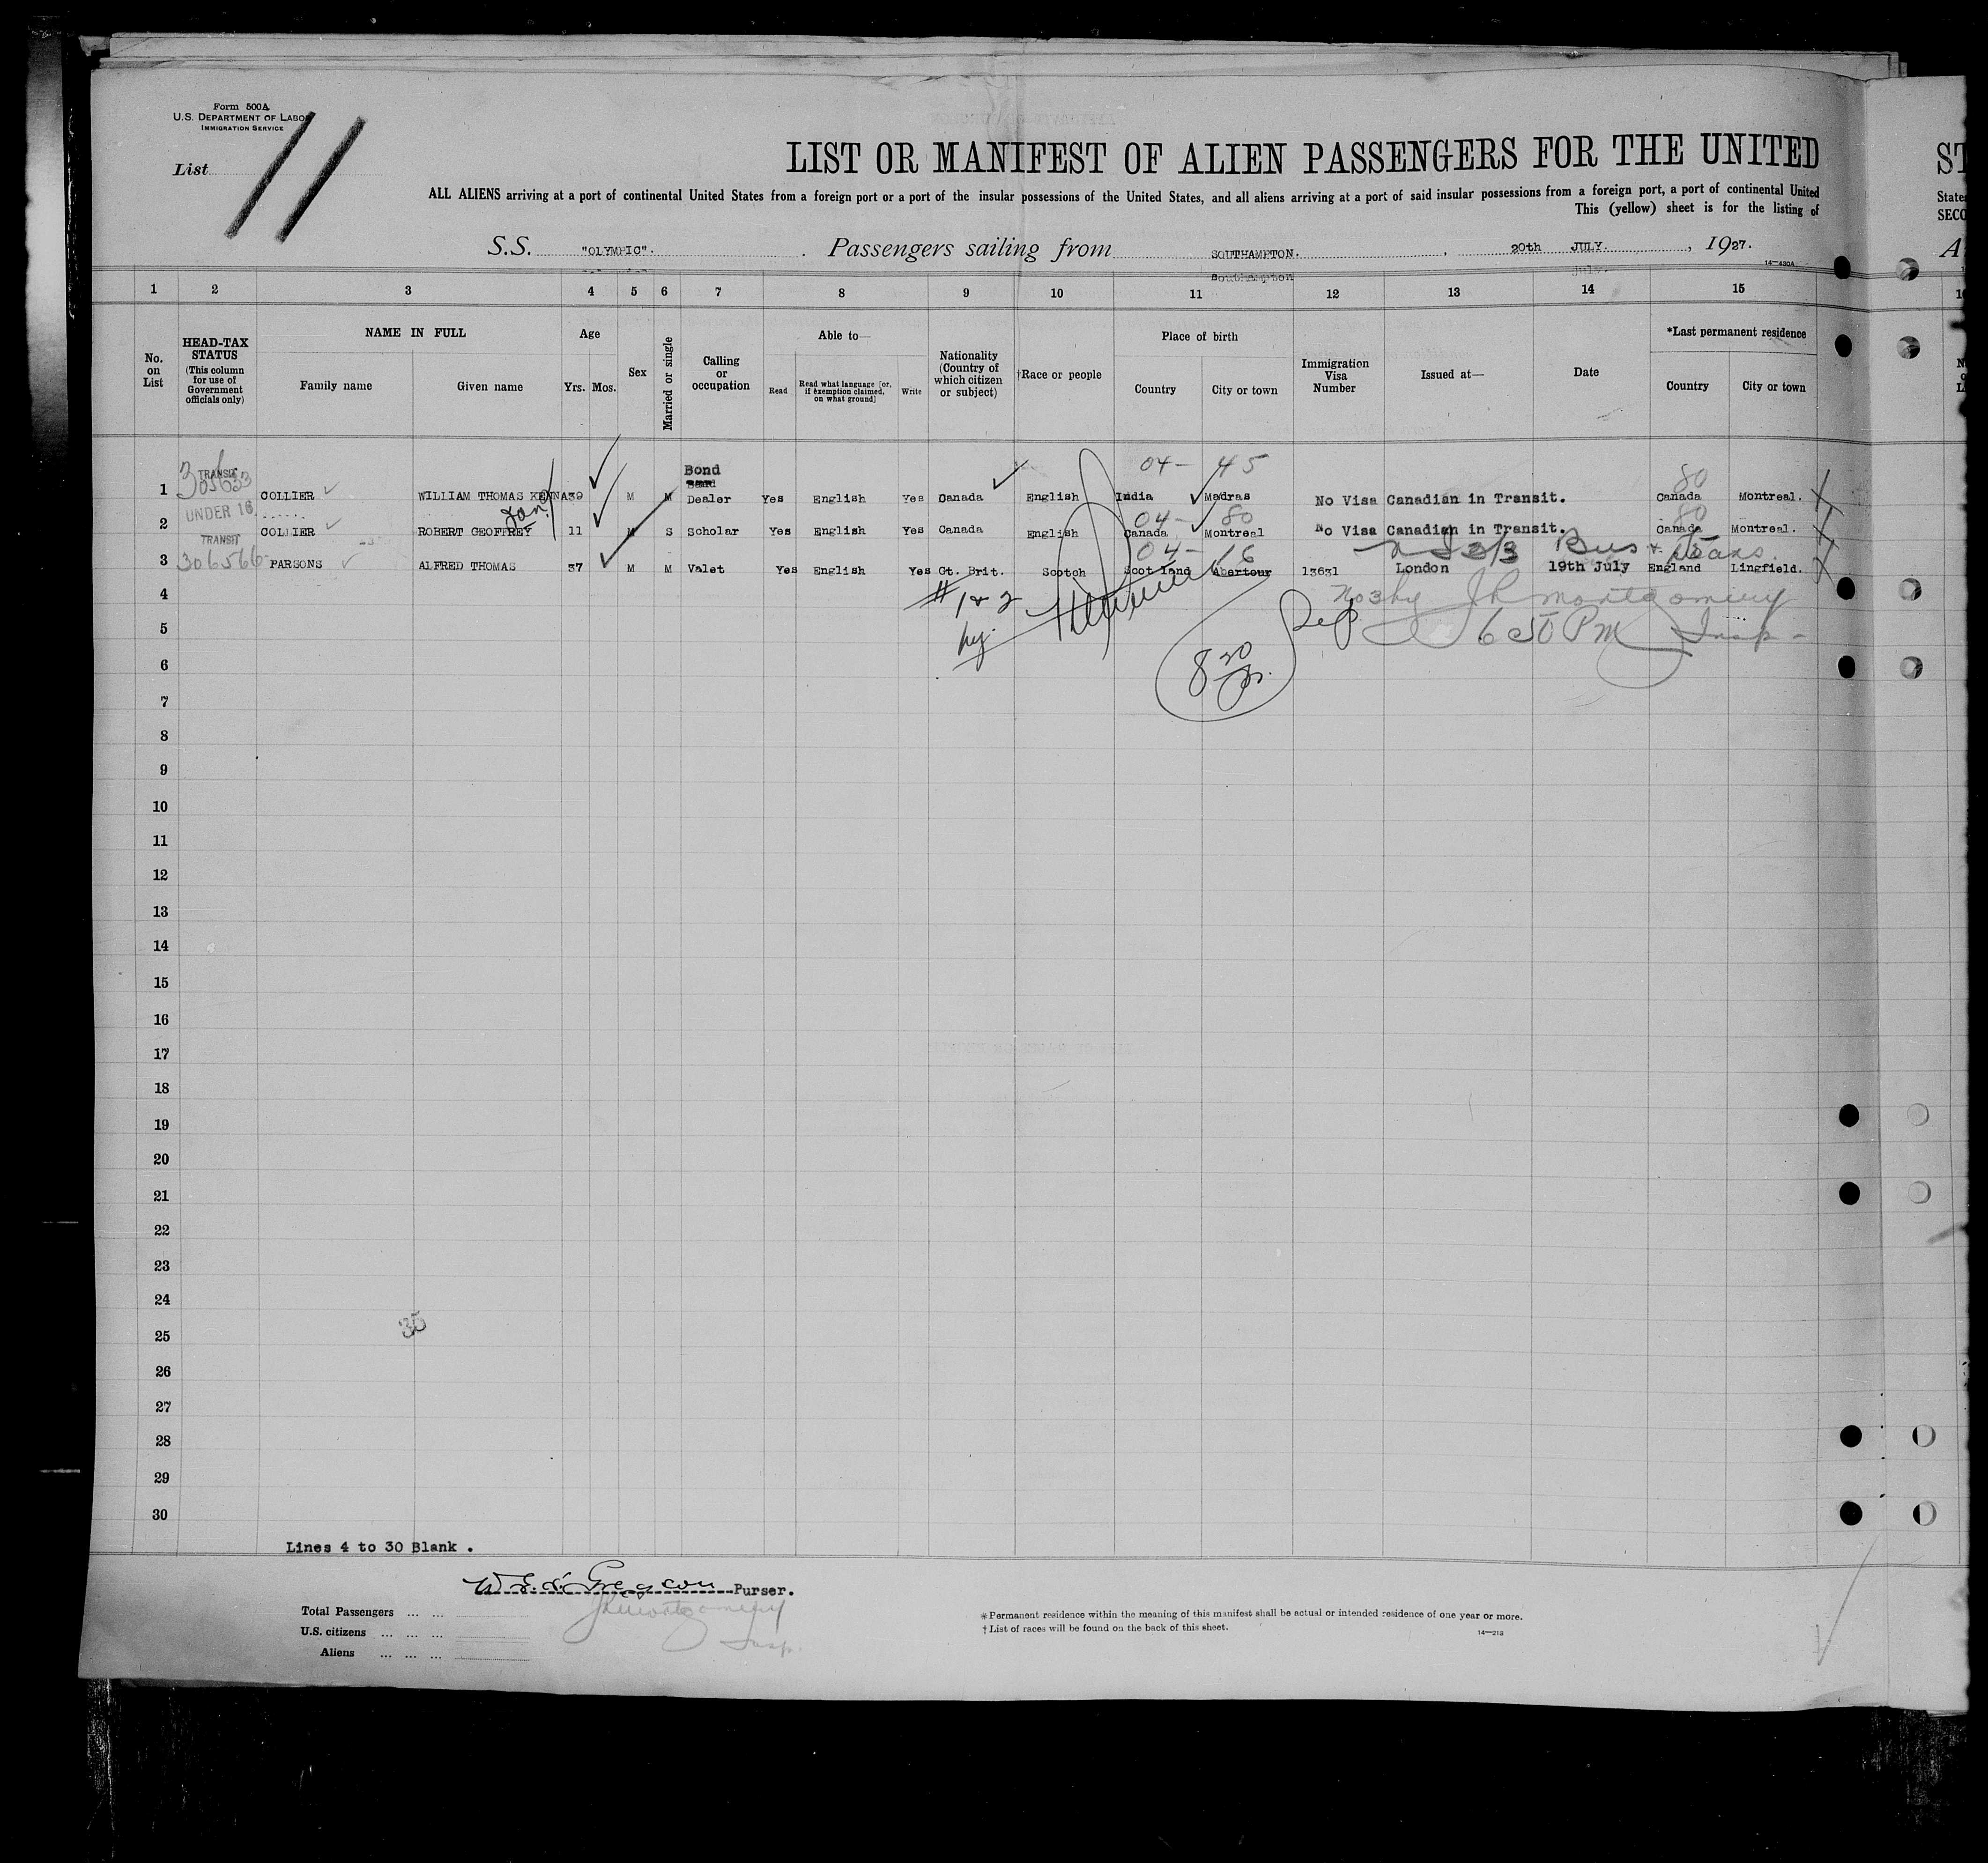 Form 500A
U.S. DEPARTMENT OF LABOR
IMMIGRATION SERVICE
List 11
LIST OR MANIFEST OF ALIEN PASSENGERS FOR THE UNITED ST
ALL ALIENS arriving at a port of continental United States from a foreign port or a port of the insular possessions of the United States, and all aliens arriving at a port of said insular possessions from a foreign port, a port of continental United State
This (yellow) sheet is for the listing of SECO
S.S. "OLYMPIC". Passengers sailing from SOUTHAMPTON. , 20th JULY. , 1927. A
Southampton July.
14—430A
1 2 3 4 5 6 7 8 9 10 11 12 13 14 15
No. on List
HEAD-TAX STATUS (This column for use of Government officials only)
NAME IN FULL
Family name Given name
Age
Yrs. Mos.
Sex
Married or single
Calling or occupation
Able to—
Read Read what language [or, if exemption claimed, on what ground] Write
Nationality (Country of which citizen or subject)
†Race or people
Place of birth
Country City or town
Immigration Visa Number
Issued at—
Date
*Last permanent residence
Country City or town
04- 45 80
1 TRANSIT COLLIER WILLIAM THOMAS KENNA 39 M M Bond Dealer Yes English Yes Canada English India Madras No Visa Canadian in Transit. Canada Montreal.
04- 80 80
2 UNDER 16 COLLIER ROBERT GEOFFREY 11 M S Scholar Yes English Yes Canada English Canada Montreal No Visa Canadian in Transit. Canada Montreal.
04- 16
3 TRANSIT 306566 PARSONS ALFRED THOMAS 37 M M Valet Yes English Yes Gt. Brit. Scotch Scotland Abertour 13631 London 19th July England Lingfield.
4 # 1 & 2 No 3 by JR Montgomery
5 by 650 PM Insp
6 8 30
7
8
9
10
11
12
13
14
15
16
17
18
19
20
21
22
23
24
35
25
26
27
28
29
30
Lines 4 to 30 Blank .
Purser.
JR Montgomery
Insp.
Total Passengers ... ...
U.S. citizens ... ... ...
Aliens ... ... ...
*Permanent residence within the meaning of this manifest shall be actual or intended residence of one year or more.
† List of races will be found on the back of this sheet.
14—213